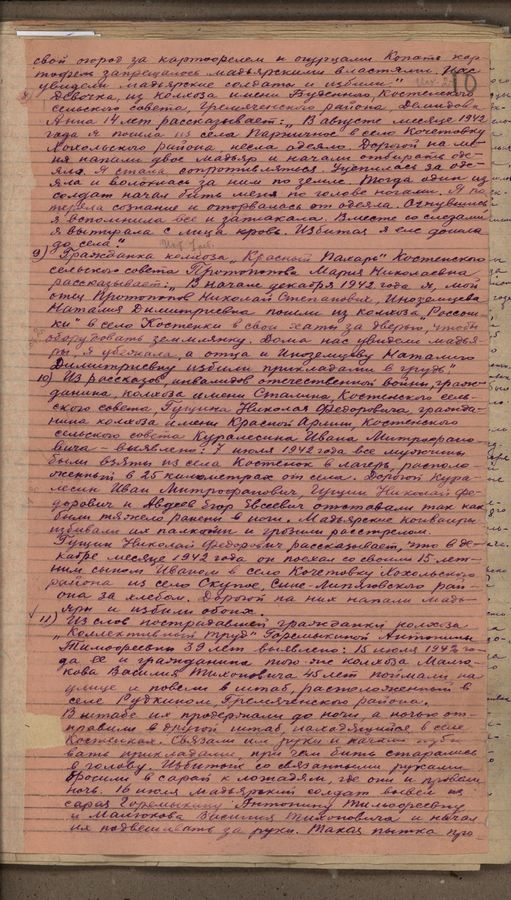 свой огород за картофелем и огурцами Копать кар
тофель запрещалось мадьярскими властями. Нас
увидели мадьярские солдаты и избили."
10
8) Девочка, из колхоза имени Буденого Костенского
сельского совета, Гремяченского района Демидова
Анна 14 лет рассказывает: „В августе месяце 1942
года я пошла из села Парничное в село Кочетовку
Хохольского района, несла одеяло. Дорогой на ме-
ня напали двое мадьяр и начали отбирать оде-
яло. Я стала сопротивляться. Уцепилась за оде-
яло и волоклась за ним по земле. Тогда один из
солдат начал бить меня по голове ногами. Я по
теряла сознание и оторвалась от одеяла. Очнувшись
я вспомнила все и заплакала. Вместе со слезами
я вытирала с лица кровь. Избитая я еле дошла
до села"
9) Гражданка колхоза „Красный Пахарь" Костенского
сельского совета Протопопова Мария Николаевна
рассказывает: „В начале декабря 1942 года я, мой
отец Протопопов Николай Степанович, Иноземцева
Наталия Димитриевна пошли из колхоза „Россош
ки" в село Костенки в свои хаты за дверью, чтобы
оборудовать землянку. Дома нас увидели мадья-
ры, я убежала, а отца и Иноземцеву Наталию
Димитриевну избили прикладами в грудь"
10) Из рассказов, инвалидов отечественной войны, граж-
данина, колхоза имени Сталина, Костенского сель-
ского совета Гущина Николая Федоровича, гражда-
нина колхоза имени Красной Армии, Костенского
сельского совета Куралесина Ивана Митрофано-
вича – выявлено: 7 июля 1942 года все мужчины
были взяты из села Костенок в лагерь, располо-
женный в 25 километрах от села. Дорогой Кура-
лесин Иван Митрофанович, Гущин Николай Фе-
дорович и Авдеев Егор Евсеевич отставали так как
были тяжело ранены в ноги. Мадьярские конвоиры
избивали их палками и грозили расстрелом.
Гущин Николай Федорович рассказывает, что в де-
кабре месяце 1942 года он поехал со своим 15 лет-
ним сыном Иваном в село Кочетовку Хохольского
района из села Скупое, Сине-Липяговского рай-
она за хлебом. Дорогой на них напали мадь-
яры и избили обоих.
11) Из слов пострадавшей гражданки колхоза
„Коллективный труд" Горемыкиной Антонины
Тимофеевны 39 лет выявлено: 15 июля 1942 го-
да ее и гражданина того-же колхоза Малю-
кова Василия Тихоновича 45 лет поймали на
улице и повели в штаб, расположенный в
селе Рудкином, Гремяченского района.
В штабе их продержали до ночи, а ночью от-
правили в другой штаб, находящийся в селе
Костенках. Связали им руки и начали изби-
вать прикладами, при чем бить старались
в голову. Избитых со связанными руками
бросили в сарай к лошадям, где они и провели
ночь. 16 июля мадьярский солдат вывел из
сарая Горемыкину Антонину Тимофеевну
и Малюкова Василия Тихоновича и начал
их подвешивать за руки. Такая пытка про-